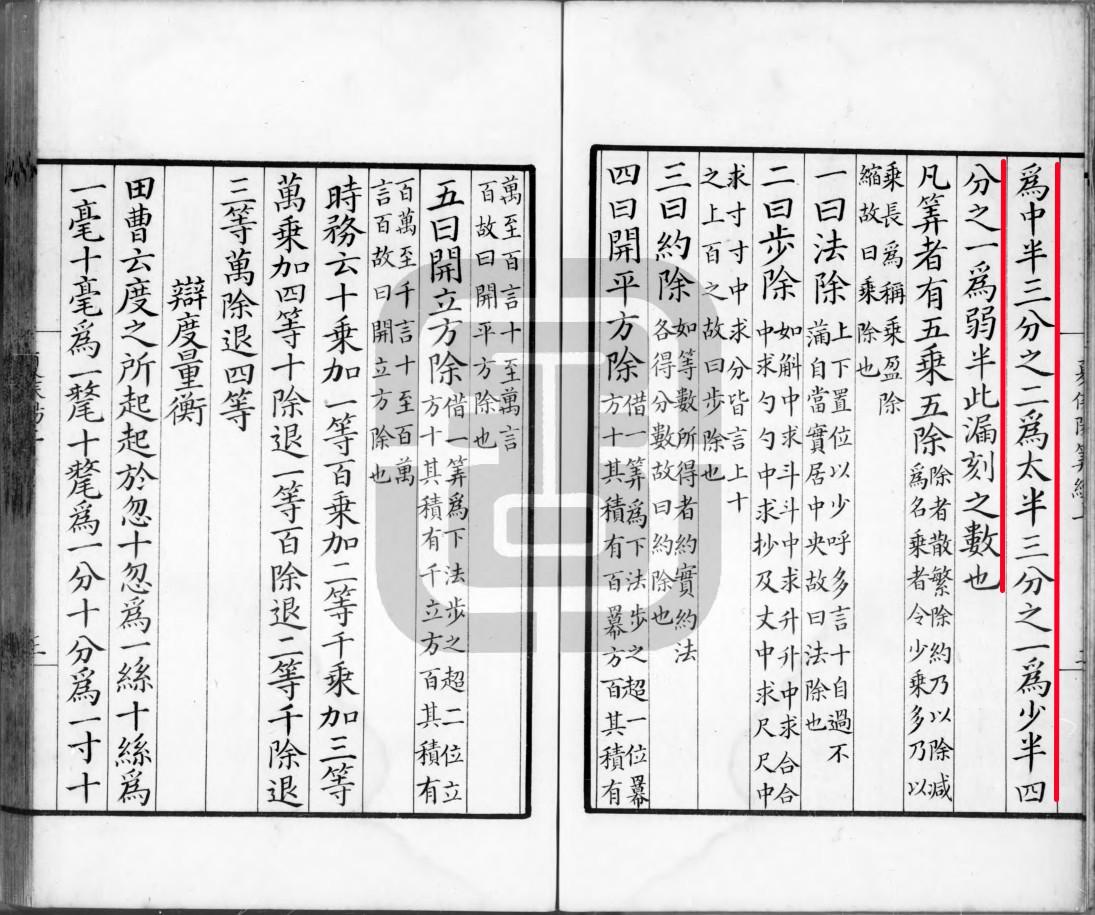 爲中半三分之二爲太半三分之一爲少半四
分之一爲弱半此漏刻之數也
凡筭者有五乘五除除者散繁除約乃以除减
爲名乘者令少乘多乃以
乘長爲稱乘盈除
縮故曰乘除也
一曰法除上下置位以少呼多言十自過不
蒲自當實居中央故曰法除也
二曰步除如斛中求斗斗中求升升中求合合
中求勺勺中求抄及丈中求尺尺中
求寸寸中求分皆言上十
之上百之故曰步除也
三曰約除如等數所得者約實約法
各得分數故曰約除也
四曰開平方除借一筭爲下法步之超一位冪
方十其積有百冪方百其積有
萬至百言十至萬言
百故曰開平方除也
五曰開立方除借一筭爲下法步之超二位立
方十其積有千立方百其積有
百萬至千言十至百萬
言百故曰開立方除也
時務云十乘加一等百乘加二等千乘加三等
萬乘加四等十除退一等百除退二等千除退
三等萬除退四等
辯度量衡
田曹云度之所起起於忽十忽爲一絲十絲爲
一毫十毫爲一氂十氂爲一分十分爲一寸十